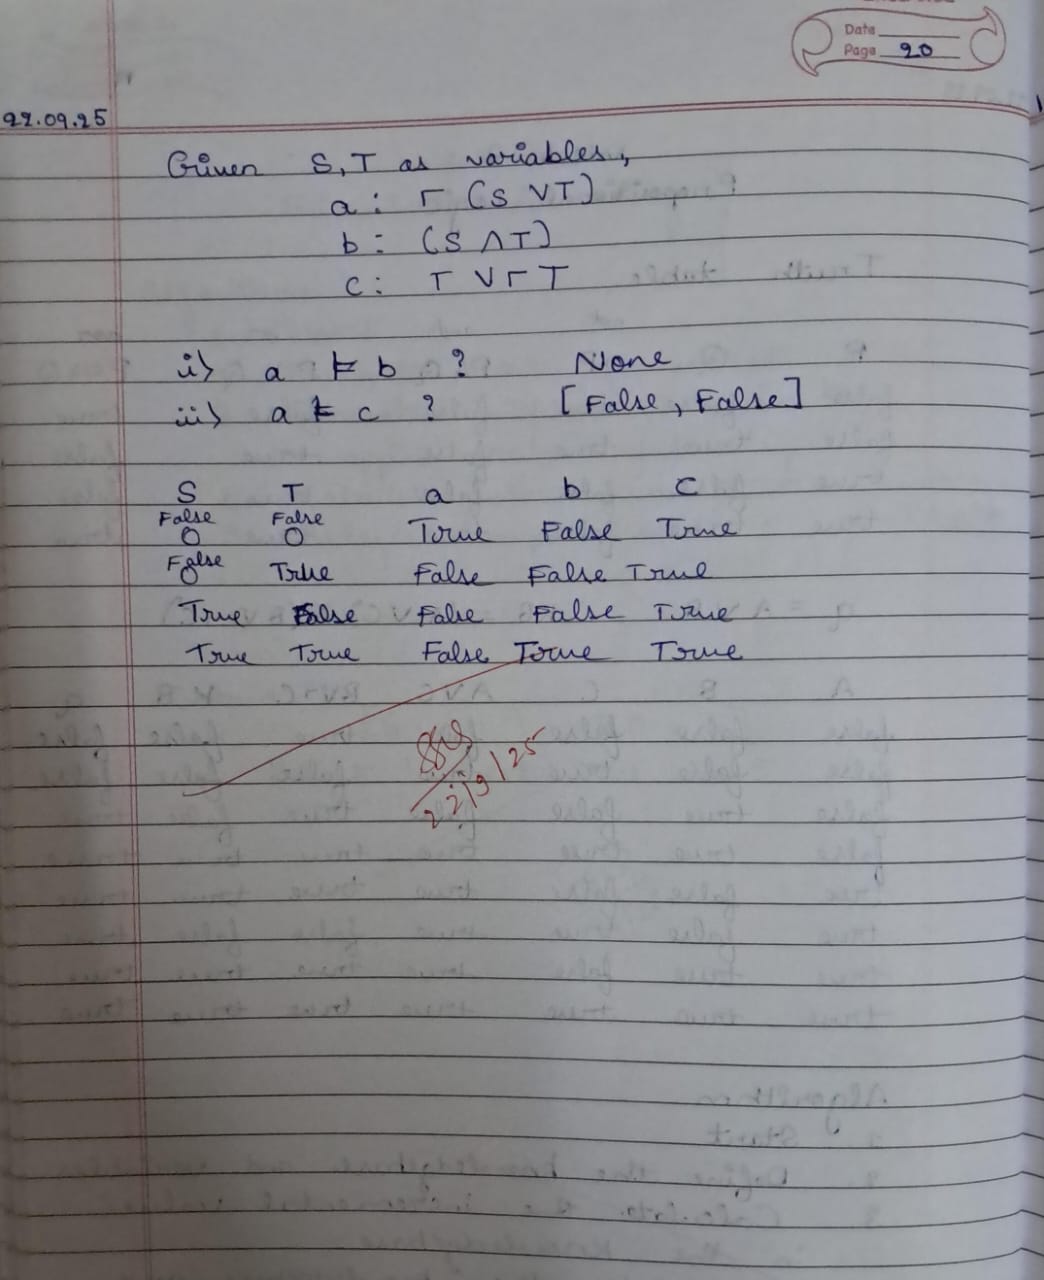 Date
Page 20
22.09.25
Given S, T as variables,
a: ┌ (S ∨ T)
b: (S ∧ T)
c: T ∨ ┌ T
i) a ⊨ b ? None
ii) a ⊨ c ? [False, False]
S T a b c
False False
0 0 True False True
False True False False True
True False False False True
True True False True True
22/9/25